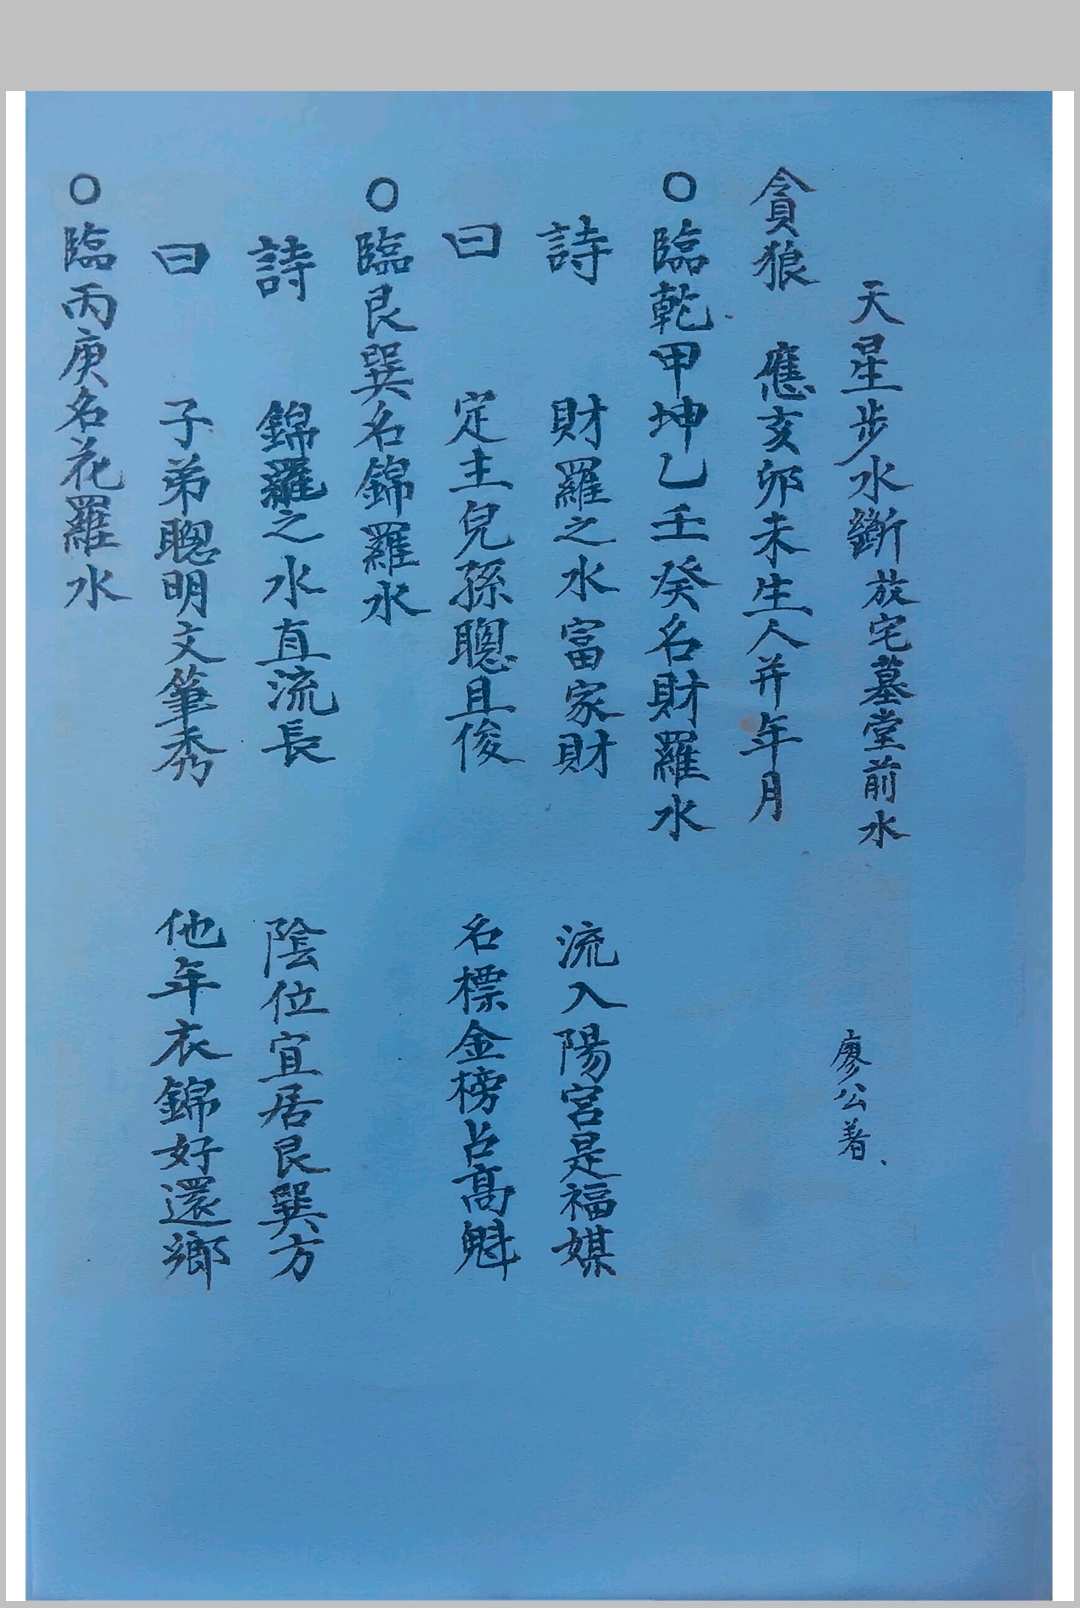 天星步水斷放宅墓堂前水
廖公著、
貪狼 應亥卯未生人并年月
○臨乾甲坤乙壬癸名財羅水
詩 財羅之水富家財 流入陽宮是福媒
曰 定主兒孫聰且俊 名標金榜占高魁
○臨艮巽名錦羅水
詩 錦羅之水直流長 陰位宜居艮巽方
曰 子弟聰明文筆秀 他年衣錦好還鄉
○臨丙庚名花羅水